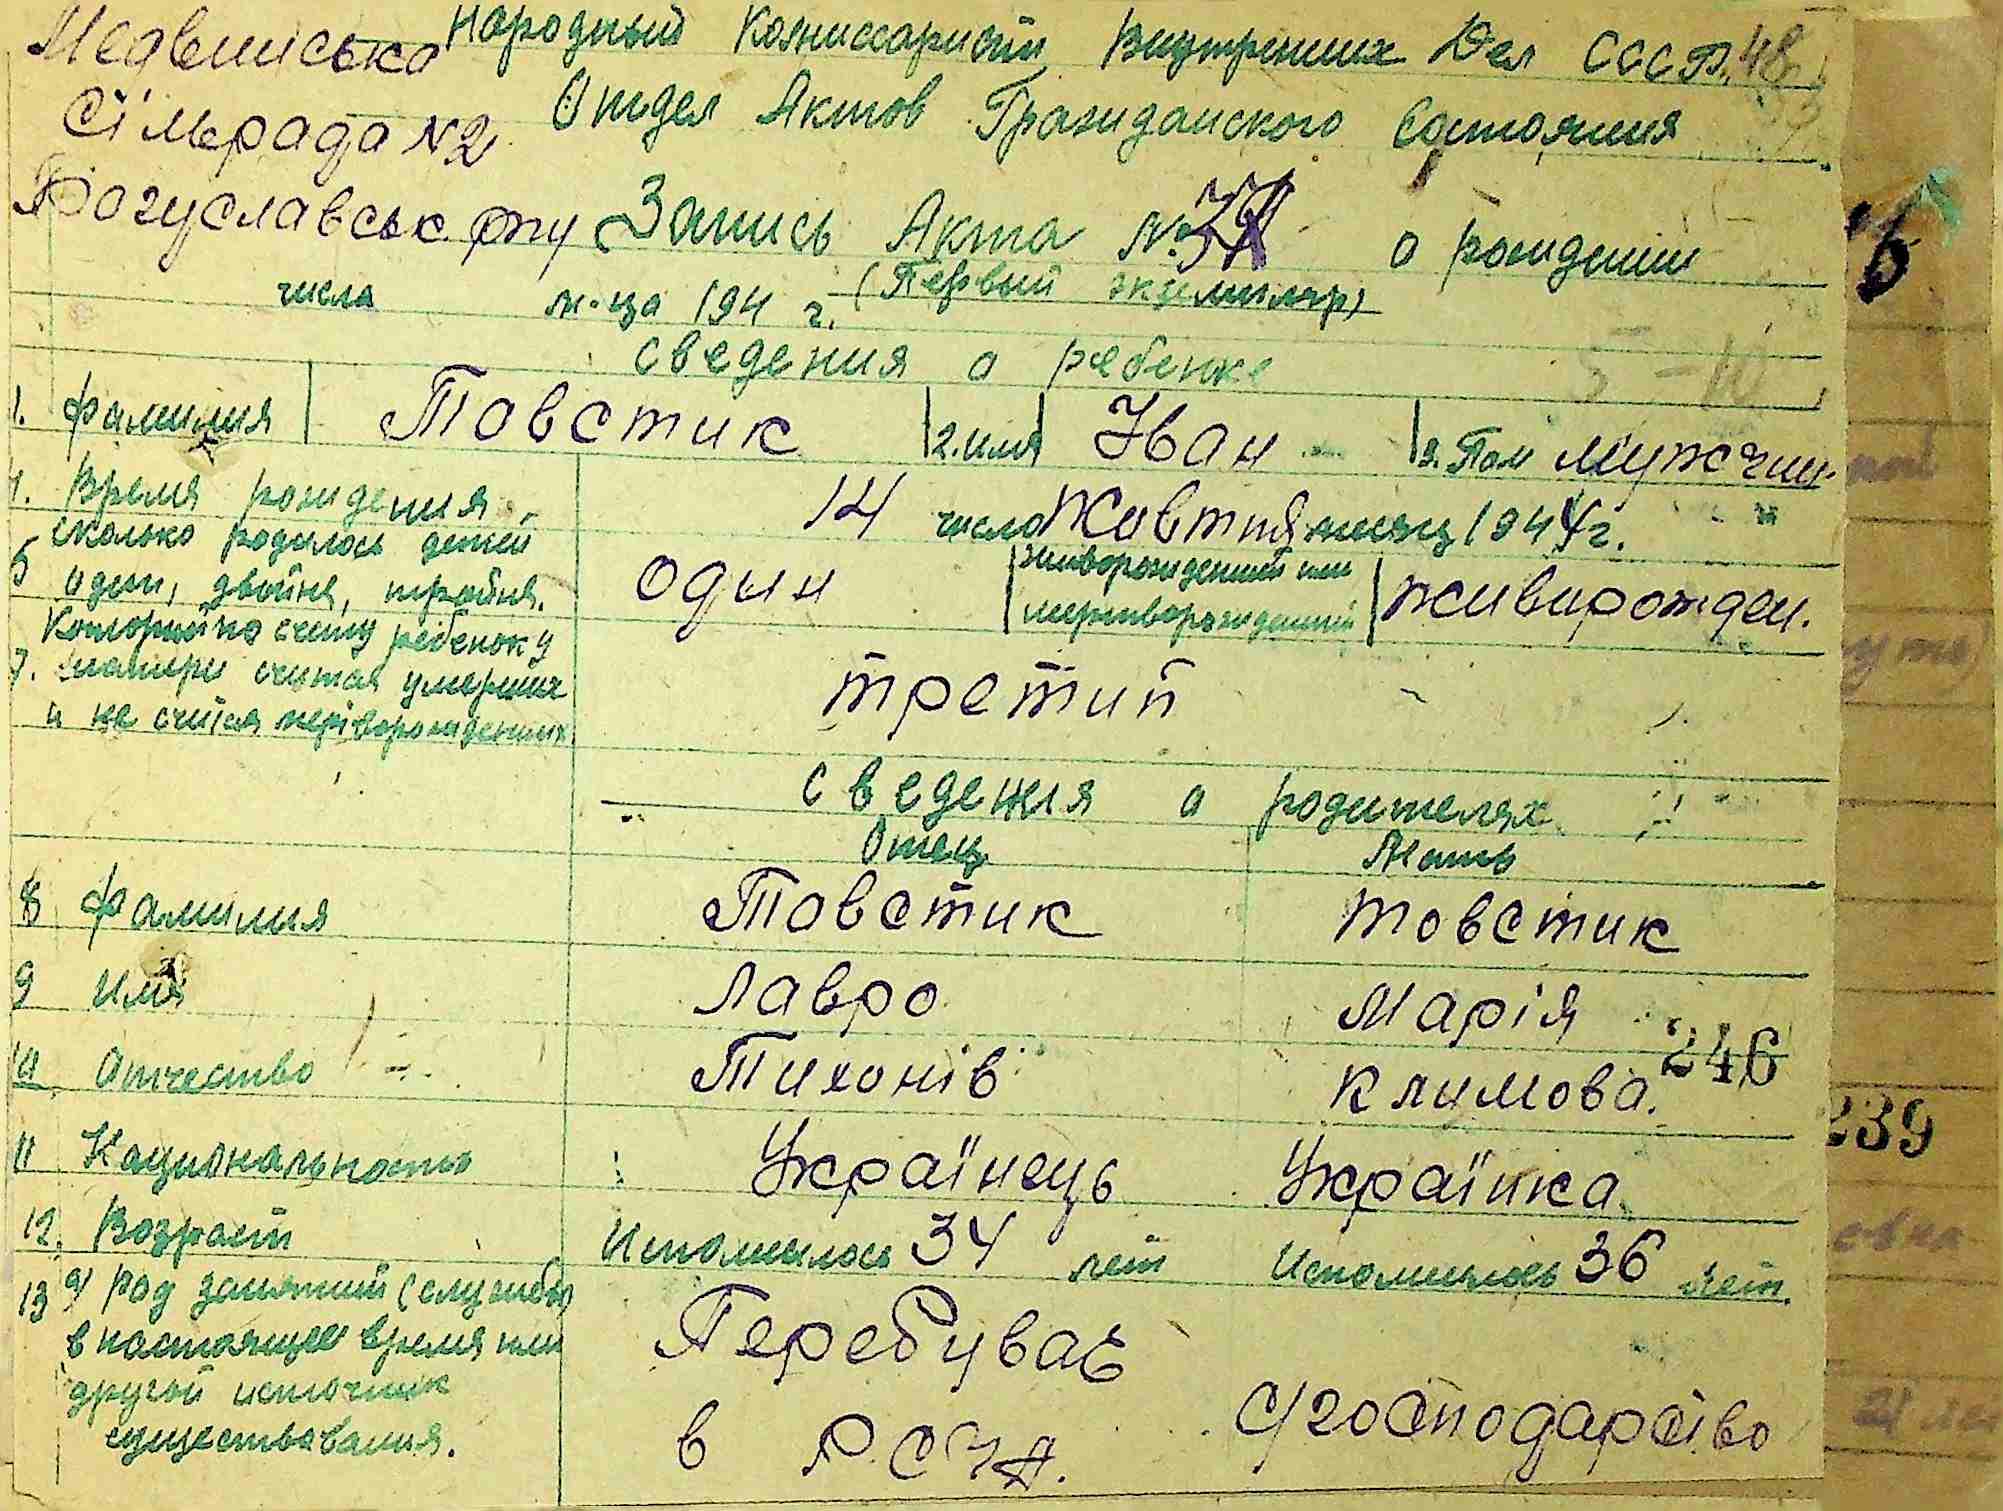 Медвинська Народный Комиссариат Внутренних Дел СССР.
Сільрада №2 Отдел Актов Гражданского Состояния
Богуславськ. р-ну Запись Акта № о рождении
числа м-ца 194 г. (Первый экземпляр)
сведения о ребенке
1. Фамилия Товстик 2. имя Іван 3. Пол мужчин.
4. Время рождения 14 число Жовтня месяц 1944 г.
сколько родилось детей
5 один, двойня, тройня. один живорожденный или мертворожденный живирожден.
Который по счету ребенок у
7. матери считая умерших третий
и не считая мертворожденных
сведения о родителях
Отец Мать
8 Фамилия Товстик Товстик
9 Имя Лавро Марія
10 Отчество Тихонів Климова. 246
239
11 Национальность Українець Українка
12. Возраст Исполнилось 34 лет Исполнилось 36 лет.
13 а) Род занятий (службы)
в настоящее время или Перебуває
другой источник
существования. в Р.СЧА. с/господарство